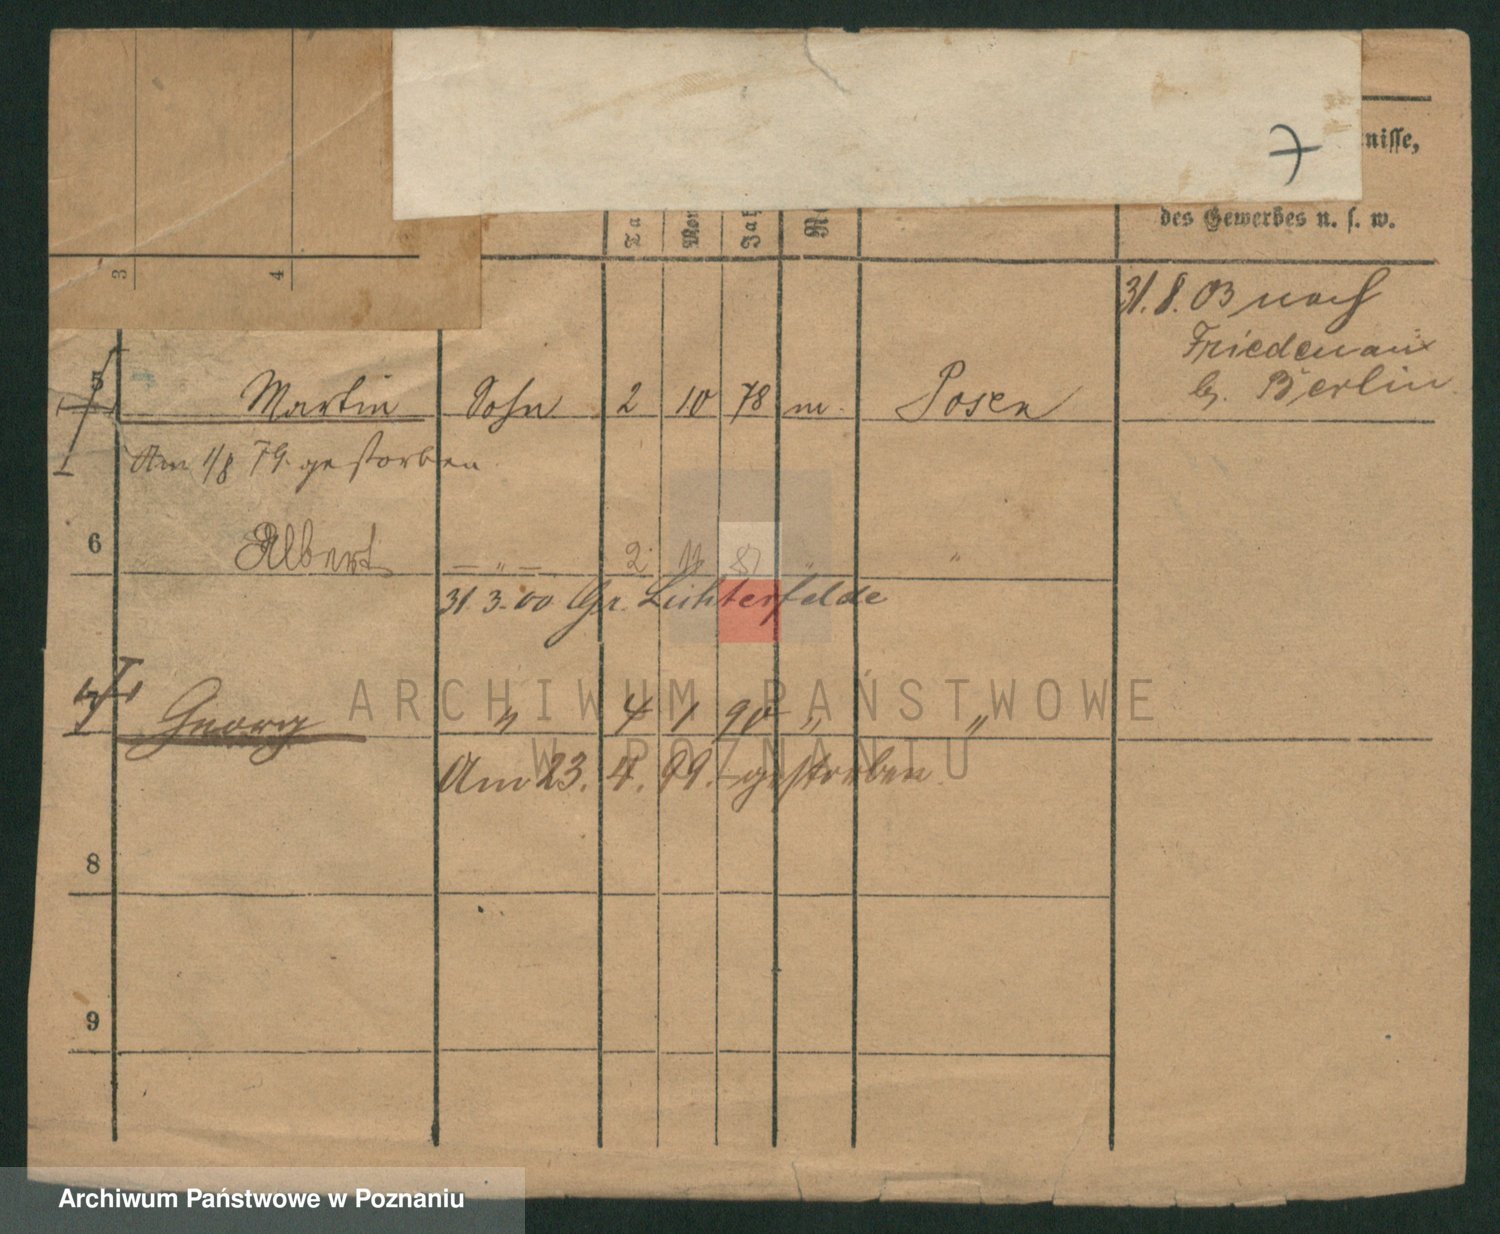 nisse,
Ta Mon Jah Re
des Gewerbes u. s. w.
3 4
31. 8. 03 nach
Friedenau
b. Berlin
5 Martin Sohn 2 10 78 m. Posen
Am 1/8 79. gestorben.
6 Albert — " — 2 11 81 " "
31. 3. 00 Gr. Lichterfelde
7 Georg " 4 1 90 " "
Am 23. 4. 99. gestorben.
8
9
ARCHIWUM PAŃSTWOWE
W POZNANIU
Archiwum Państwowe w Poznaniu